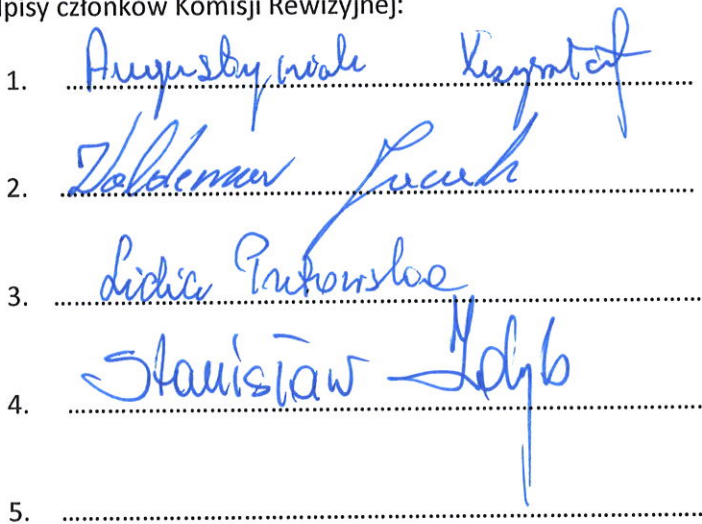 pisy członków Komisji Rewizyjnej:
1. Augustyniak Krzysztof
2. Waldemar
3. Lidia
4. Stanisław Zdyb
5.